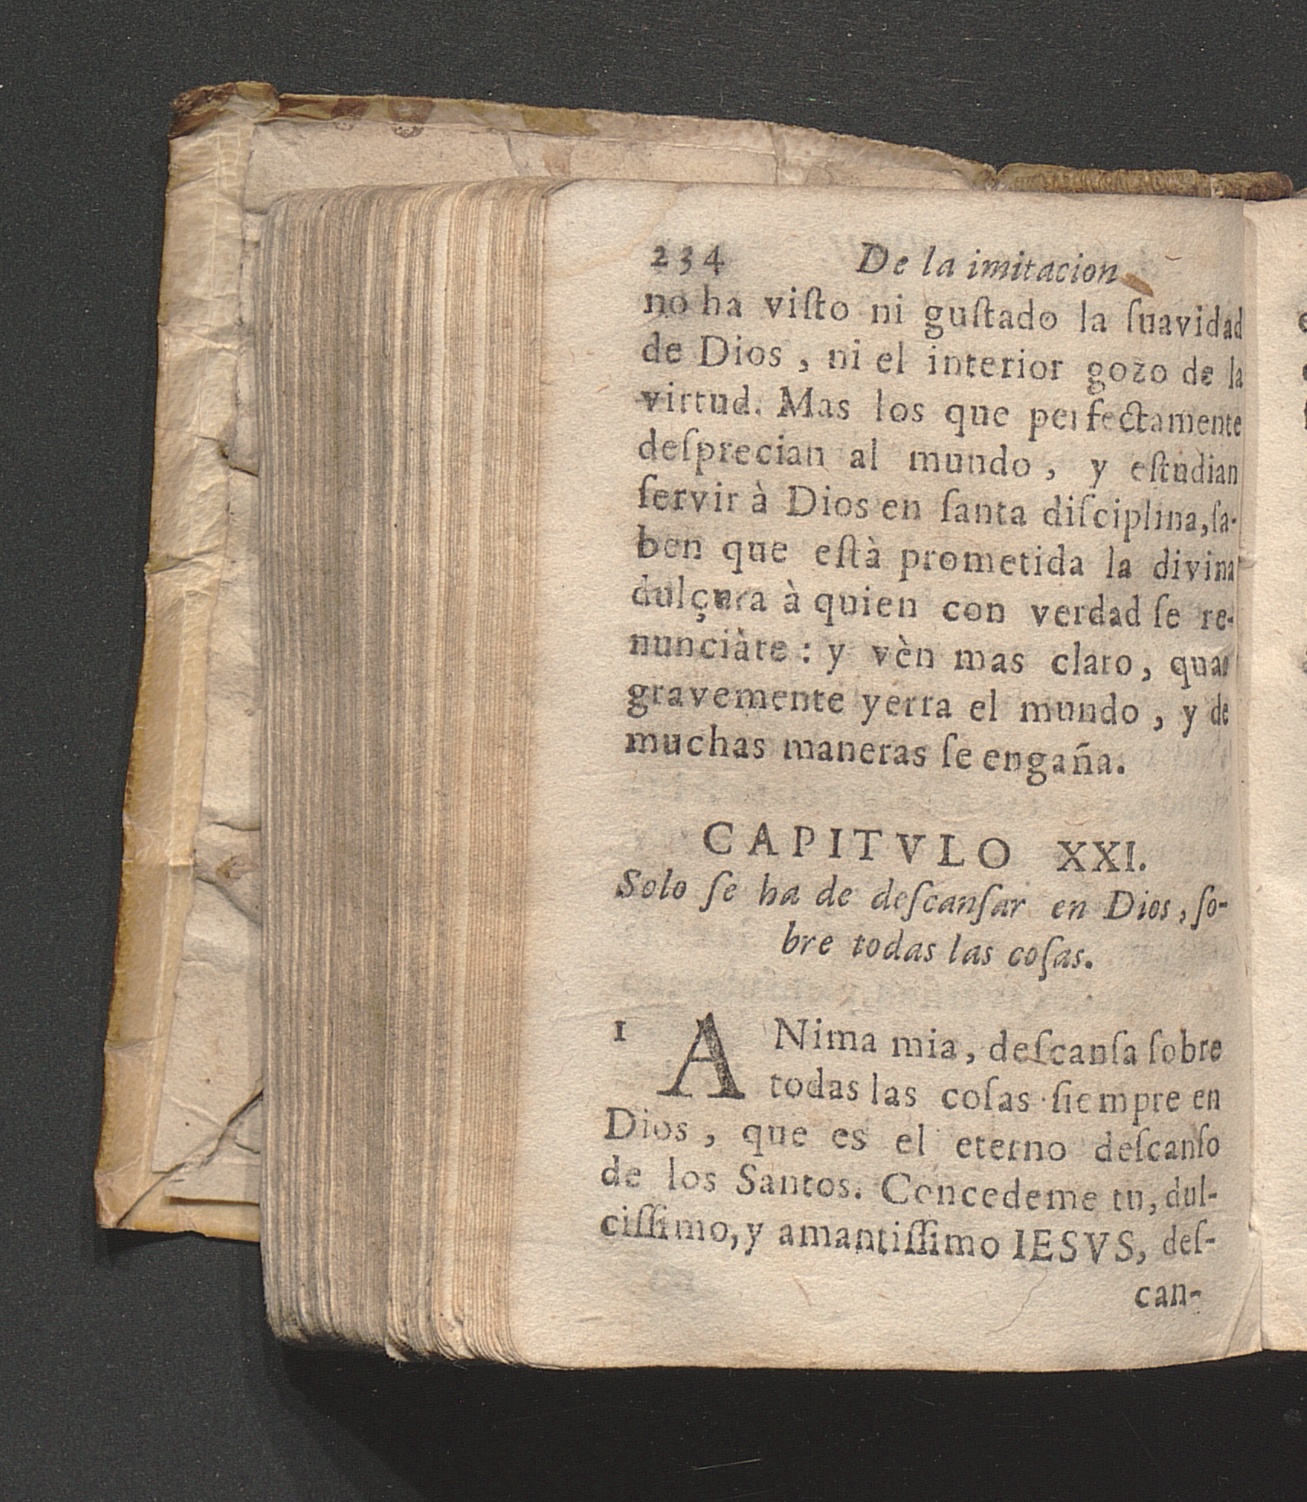 234 De la imitacion
no ha viſto ni guſtado la ſuavidad
de Dios, ni el interior gozo de la
virtud. Mas los que perfectamente
deſprecian al mundo, y eſtudian
ſervir à Dios en ſanta diſciplina, ſa-
ben que eſtà prometida la divina
dulçura à quien con verdad ſe re-
nunciàre: y vèn mas claro, quan
gravemente yerra el mundo, y de
muchas maneras ſe engaña.
CAPITVLO XXI.
Solo ſe ha de deſcanſar en Dios, ſo-
bre todas las coſas.
1 ANima mia, deſcanſa ſobre
todas las coſas ſiempre en
Dios, que es el eterno deſcanſo
de los Santos. Concedeme tu, dul-
ciſſimo, y amantiſſimo IESVS, deſ-
can-